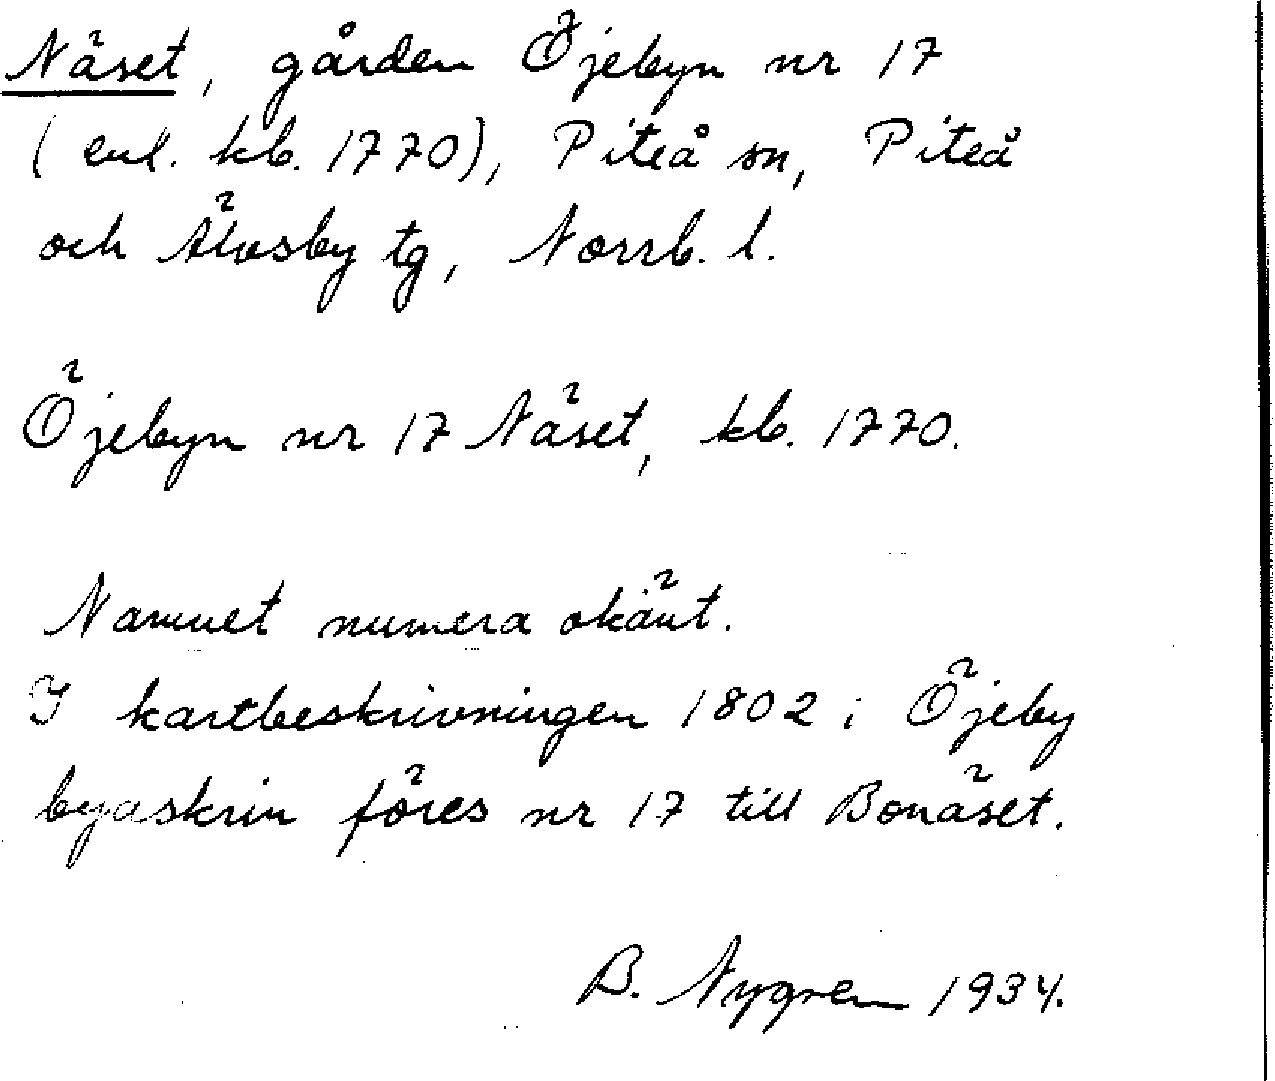 Näset, gården Öjebyn nr 17
(enl. kb. 1770), Piteå sn, Piteå
och Älvsby tg, Norrb. l.
Öjebyn nr 17 Näset, kb. 1770.
Namnet numera okänt.
I kartbeskrivningen 1802 i Öjeby
byaskrin föres nr 17 till Bonäset.
B. Nygren 1934.